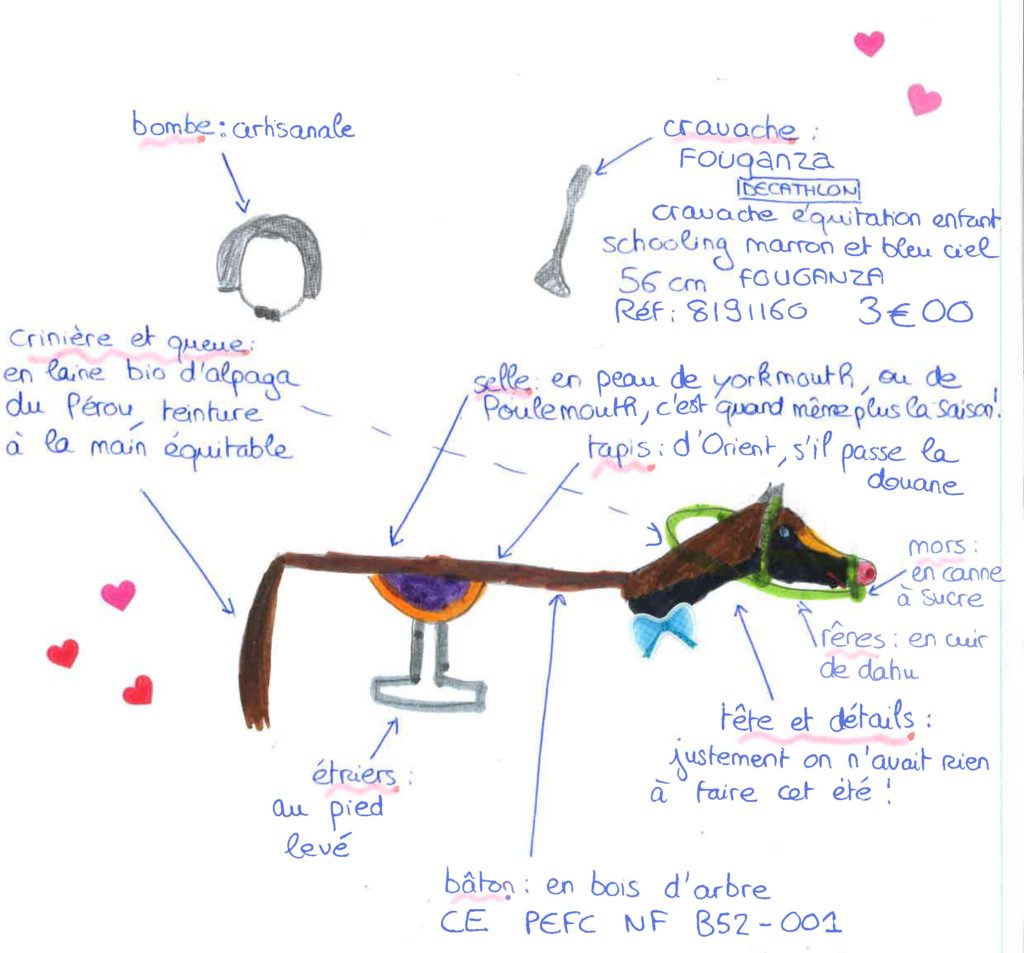 bombe : artisanale
cravache :
FOUGANZA
DECATHLON
cravache équitation enfant
schooling marron et bleu ciel
56 cm FOUGANZA
Réf : 8191160 3€00
Crinière et queue :
en laine bio d'alpaga
du Pérou, teinture
à la main équitable
selle : en peau de yorkmouth, ou de
Poulemouth, c'est quand même plus la saison !
tapis : d'Orient, s'il passe la
douane
mors :
en canne
à sucre
rênes : en cuir
de dahu
tête et détails :
justement on n'avait rien
à faire cet été !
étriers :
au pied
levé
bâton : en bois d'arbre
CE PEFC NF B52-001